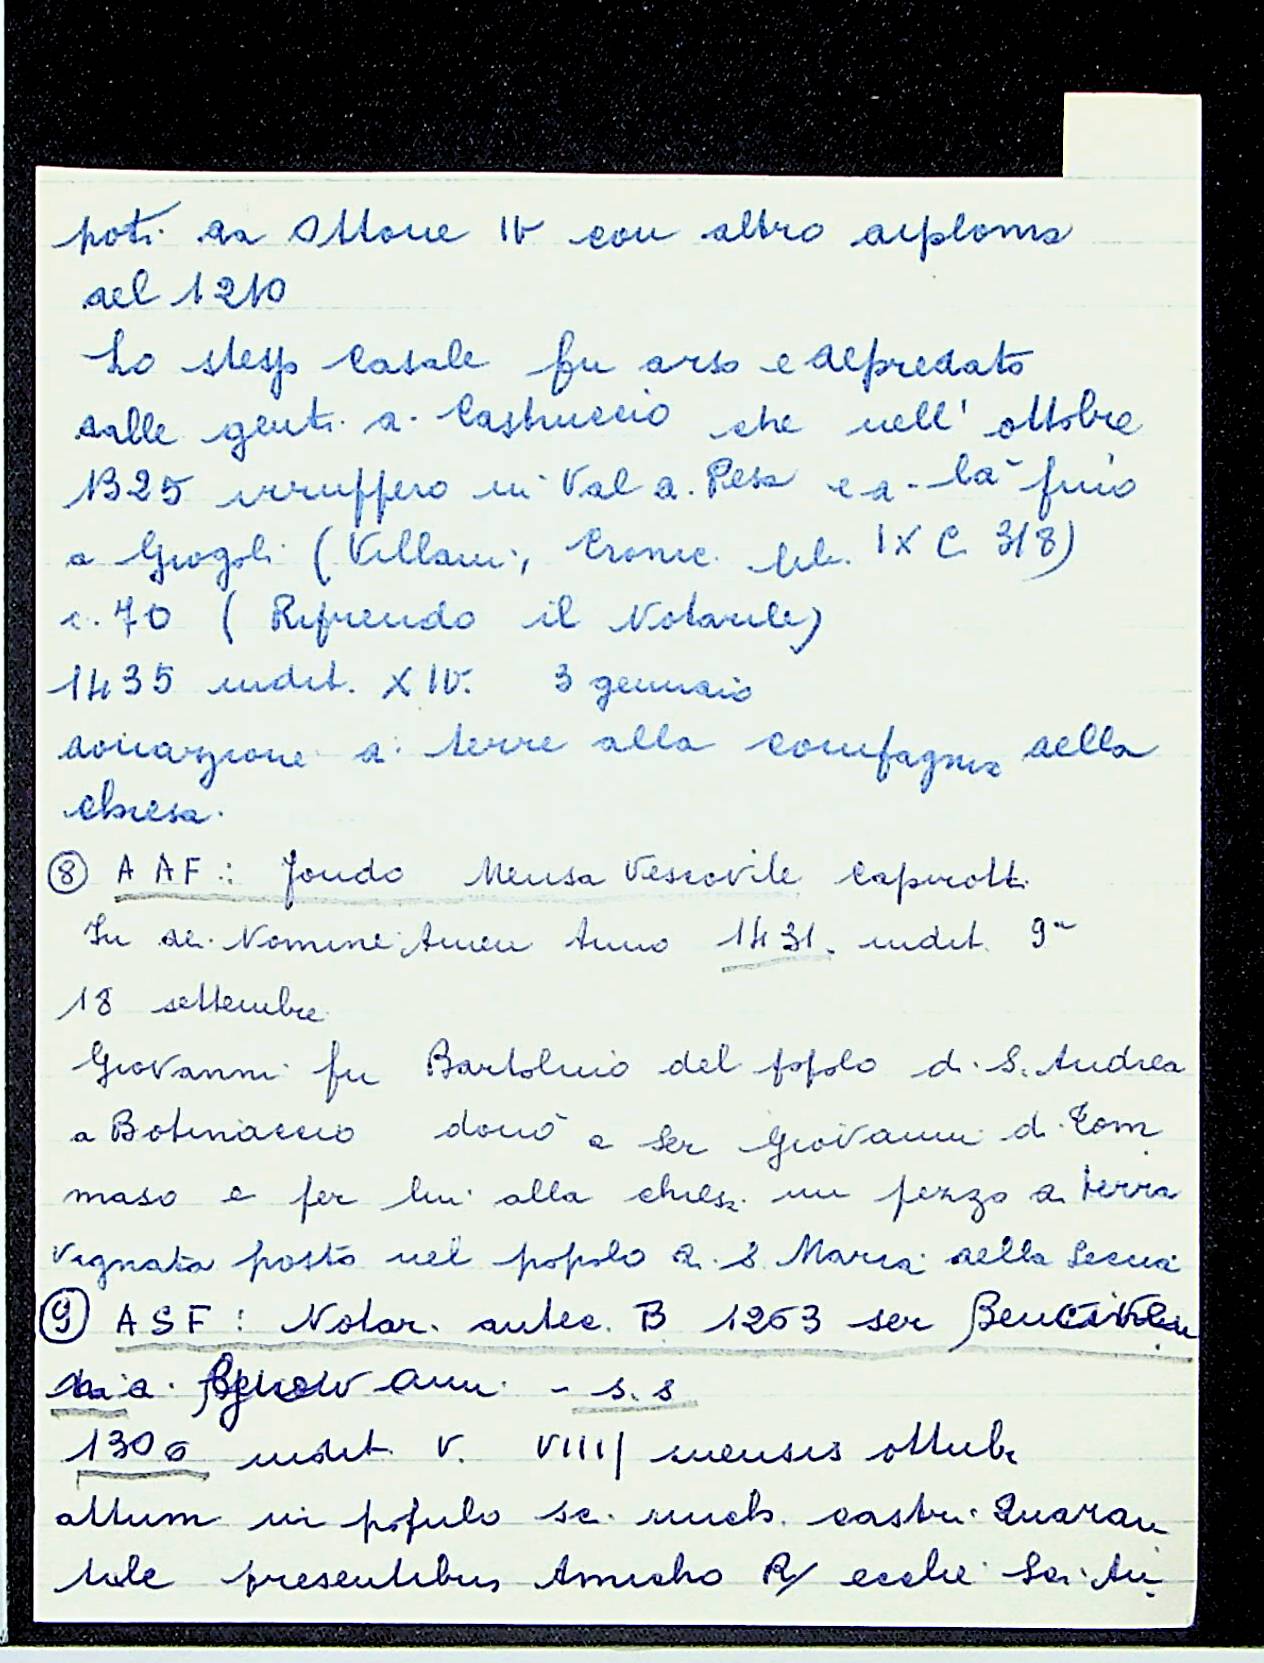 poti da Ottone IV con altro diploma
del 1210
Lo stesso Casale fu arso e depredato
dalle genti di Castruccio che nell' ottobre
1325 irruppero in Val di Pesa e di là fino
a Giogoli (Villani, Cronic. lib. IX C. 318)
c. 70 (Riprendo il Notarile)
1435 indit. XIV. 3 gennaio
donazione di terre alla compagnia della
chiesa.
⑧ AAF: fondo Mensa Vescovile Capirott.
In dei Nomine Amen Anno 1431. indit. 9ª
18 settembre
Giovanni fu Bartoluccio del popolo di S. Andrea
a Botinaccio donò a Ser Giovanni di Tom
maso e per lui alla chiesa un pezzo di terra
vignata posto nel popolo di S Maria della
⑨ ASF: Notar. antec. B 1263 ser
di - s. s
1306 indit. V. VIII mensis ottubr
attum in populo sc. castri Quaran
tule presentibus Amicho R/ ecclie Sci. An